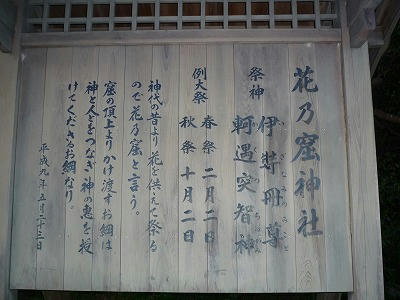 花乃窟神社
祭神
伊弉冊尊
いざなみのみこと
軻遇突智神
例大祭
春祭 二月二日
秋祭 十月二日
神代の昔より花を供えて祭る
ので花乃窟と言う。
窟の頂上よりかけ渡すお綱は
神と人とをつなぎ神の恵を授
けてくださるお綱なり。
平成九年五月二十三日